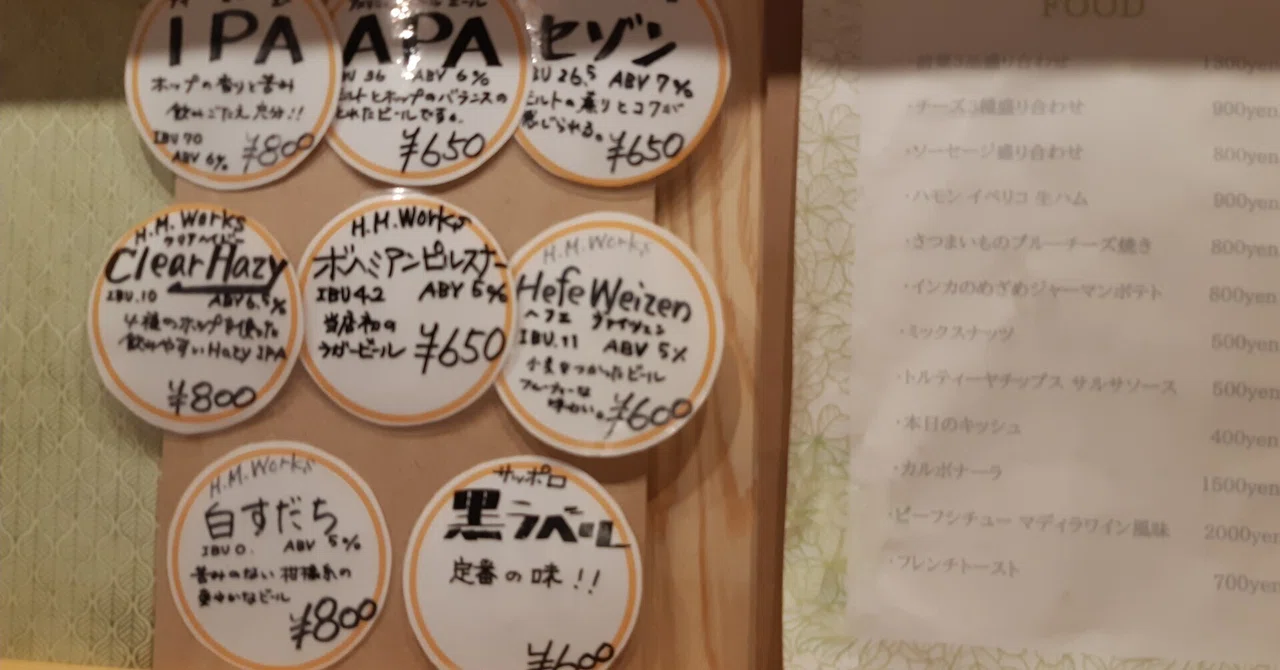 IPA
ホップの香りと苦み
飲みごたえ充分!!
IBU 70
ABV 6%
¥800
APA
36 ABV 6%
モルトとホップのバランスの
とれたビールです。
¥650
セゾン
IBU 26.5 ABV 7%
モルトの薫りとコクが
感じられる。
¥650
H.M.Works
クリアヘイジー
Clear Hazy
IBU.10 ABV 6.5%
4種のホップを使った
飲みやすいHazy IPA
¥800
H.M.Works
ボヘミアンピルスナー
IBU 42 ABV 5%
当店初の
ラガービール
¥650
H.M.Works
Hefe Weizen
ヘフェ ヴァイツェン
IBU.11 ABV 5%
小麦をつかったビール
フルーティーな
味わい。
¥600
H.M.Works
白すだち
IBU 0. ABV 5%
苦みのない柑橘系の
爽やかなビール
¥800
サッポロ
黒ラベル
定番の味!!
¥600
FOOD
盛り合わせ 1300yen
・チーズ3種盛り合わせ 900yen
・ソーセージ盛り合わせ 800yen
・ハモン イベリコ 生ハム 900yen
・さつまいものブルーチーズ焼き 800yen
・インカのめざめジャーマンポテト 800yen
・ミックスナッツ 500yen
・トルティーヤチップス サルサソース 500yen
・本日のキッシュ 400yen
・カルボナーラ 1500yen
・ビーフシチュー マディラワイン風味 2000yen
・フレンチトースト 700yen